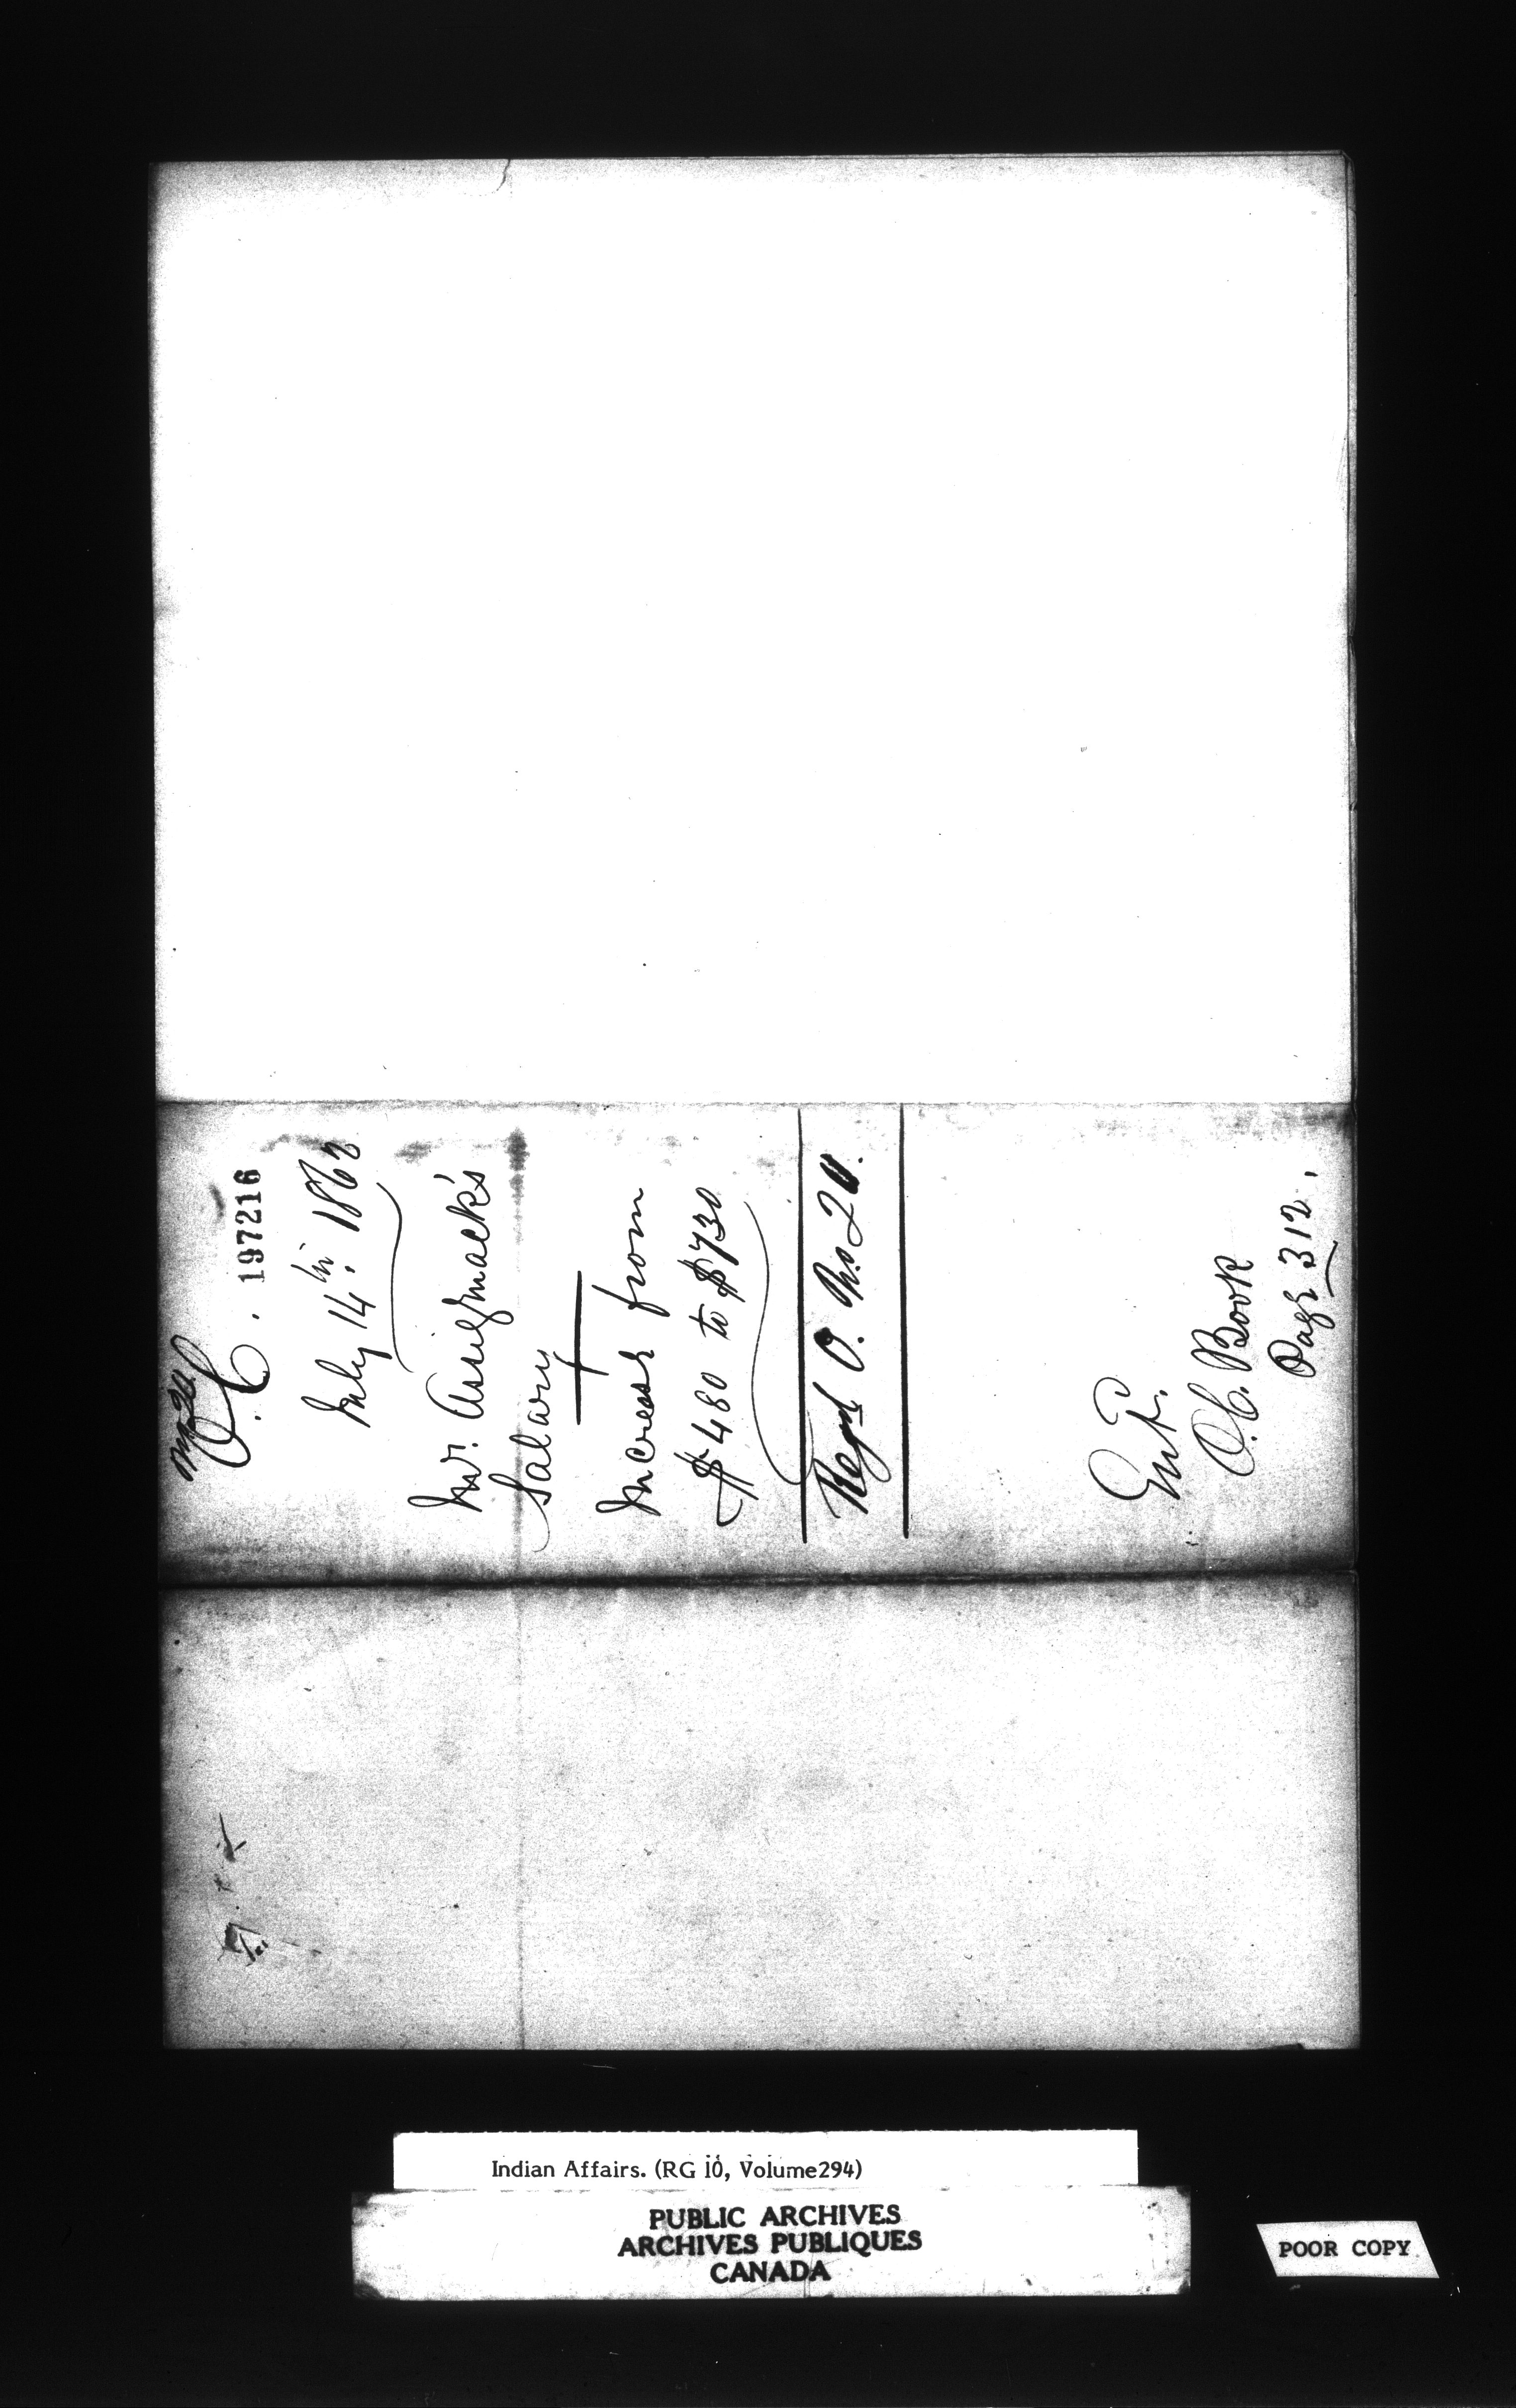 No 20
O.C.
197216
July 14th 1862
Mr. Assiginack's
Salary
Increase from
$480 to $730
Regd O. No. 20.
Ent.
O.C. Book
Page 312.
Indian Affairs. (RG 10, Volume294)
PUBLIC ARCHIVES
ARCHIVES PUBLIQUES
CANADA
POOR COPY